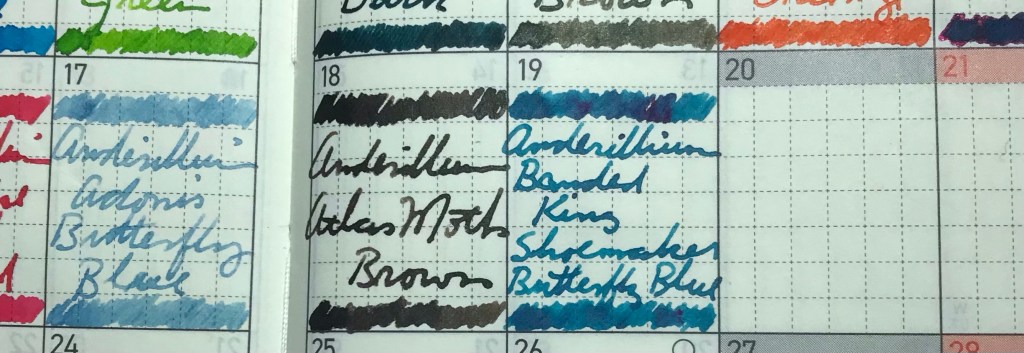 Green
Dark
Brown
17
18
19
20
21
Anderillium
Adonis
Butterfly
Blaue
Anderillium
Atlas Moth
Brown
Anderillium
Banded
King
Shoemaker
Butterfly Blue
24
25
26
27
28